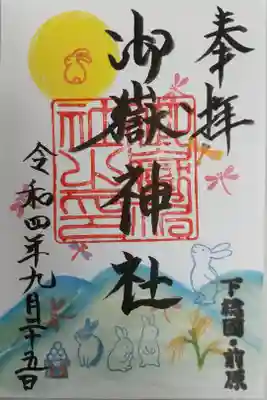 奉拝
下総国・前原
御嶽神社
令和四年九月二十五日